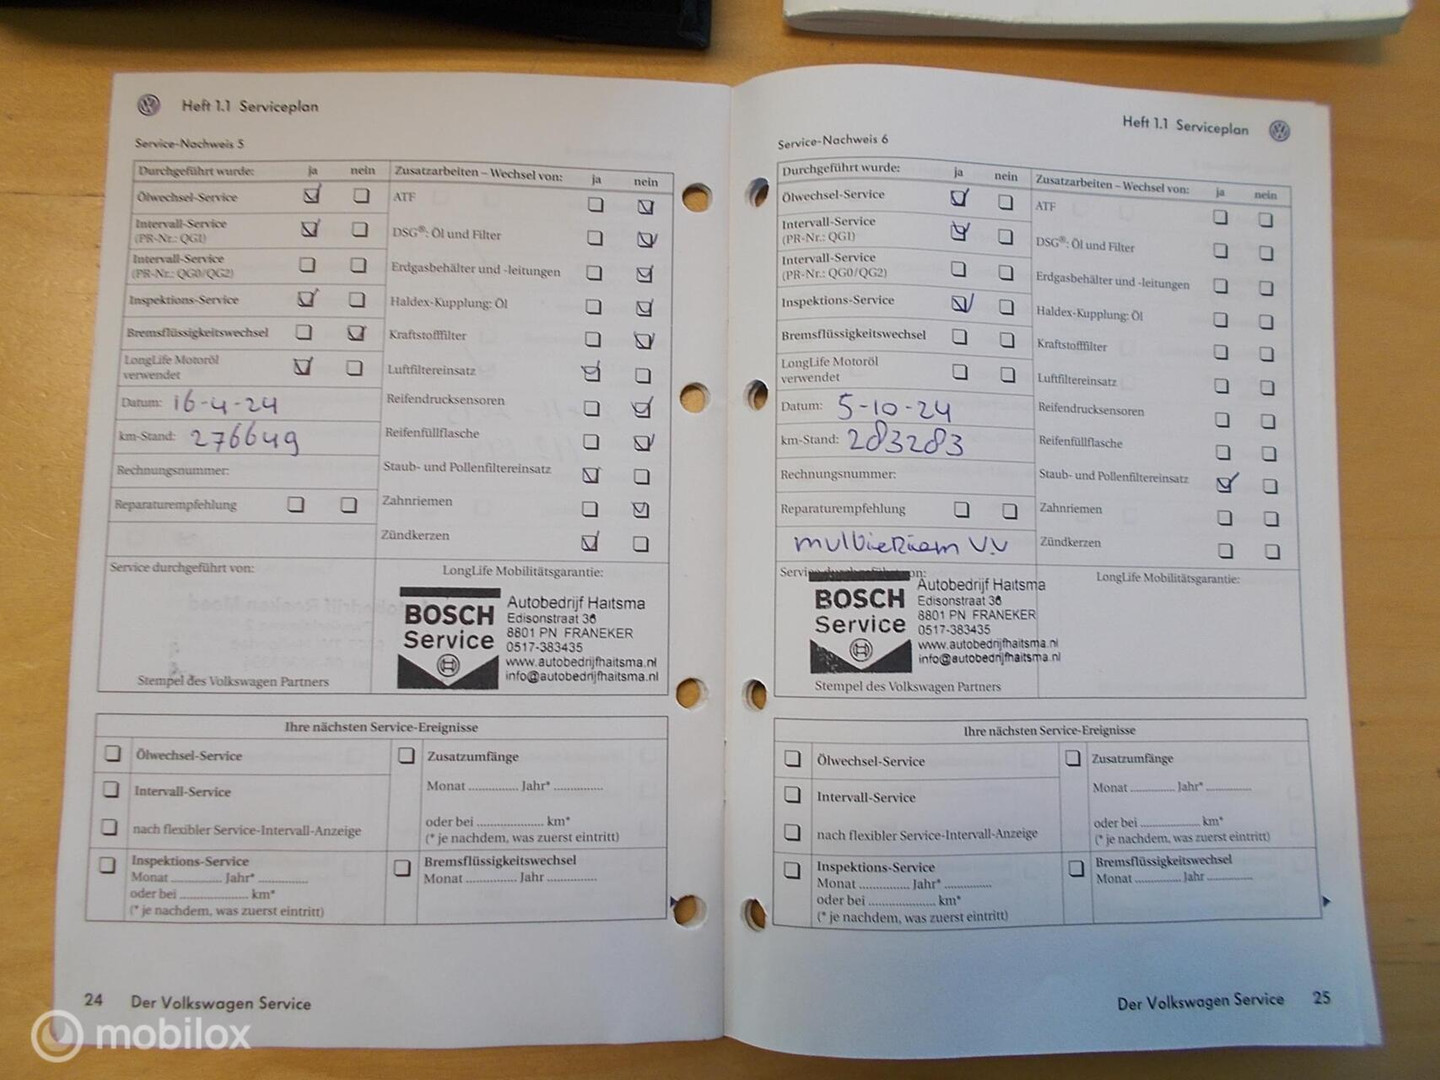 Heft 1.1 Serviceplan
Service-Nachweis 5
Durchgeführt wurde: ja nein
Ölwechsel-Service
Intervall-Service
(PR-Nr.: QG1)
Intervall-Service
(PR-Nr.: QG0/QG2)
Inspektions-Service
Bremsflüssigkeitswechsel
LongLife Motoröl
verwendet
Datum: 16-4-24
km-Stand: 276649
Rechnungsnummer:
Reparaturempfehlung
Zusatzarbeiten – Wechsel von: ja nein
ATF
DSG®: Öl und Filter
Erdgasbehälter und -leitungen
Haldex-Kupplung: Öl
Kraftstofffilter
Luftfiltereinsatz
Reifendrucksensoren
Reifenfüllflasche
Staub- und Pollenfiltereinsatz
Zahnriemen
Zündkerzen
Service durchgeführt von:
LongLife Mobilitätsgarantie:
BOSCH
Service
Autobedrijf Haitsma
Edisonstraat 36
8801 PN FRANEKER
0517-383435
www.autobedrijfhaitsma.nl
info@autobedrijfhaitsma.nl
Stempel des Volkswagen Partners
Ihre nächsten Service-Ereignisse
Ölwechsel-Service
Intervall-Service
nach flexibler Service-Intervall-Anzeige
Inspektions-Service
Monat ............. Jahr* .............
oder bei .................. km*
(* je nachdem, was zuerst eintritt)
Zusatzumfänge
Monat ............. Jahr* .............
oder bei .................. km*
(* je nachdem, was zuerst eintritt)
Bremsflüssigkeitswechsel
Monat ............. Jahr .............
24 Der Volkswagen Service
Heft 1.1 Serviceplan
Service-Nachweis 6
Durchgeführt wurde: ja nein
Ölwechsel-Service
Intervall-Service
(PR-Nr.: QG1)
Intervall-Service
(PR-Nr.: QG0/QG2)
Inspektions-Service
Bremsflüssigkeitswechsel
LongLife Motoröl
verwendet
Datum: 5-10-24
km-Stand: 283283
Rechnungsnummer:
Reparaturempfehlung
multieRiem V.V
Zusatzarbeiten – Wechsel von: ja nein
ATF
DSG®: Öl und Filter
Erdgasbehälter und -leitungen
Haldex-Kupplung: Öl
Kraftstofffilter
Luftfiltereinsatz
Reifendrucksensoren
Reifenfüllflasche
Staub- und Pollenfiltereinsatz
Zahnriemen
Zündkerzen
Service durchgeführt von:
LongLife Mobilitätsgarantie:
BOSCH
Service
Autobedrijf Haitsma
Edisonstraat 36
8801 PN FRANEKER
0517-383435
www.autobedrijfhaitsma.nl
info@autobedrijfhaitsma.nl
Stempel des Volkswagen Partners
Ihre nächsten Service-Ereignisse
Ölwechsel-Service
Intervall-Service
nach flexibler Service-Intervall-Anzeige
Inspektions-Service
Monat ............. Jahr* .............
oder bei .................. km*
(* je nachdem, was zuerst eintritt)
Zusatzumfänge
Monat ............. Jahr* .............
oder bei .................. km*
(* je nachdem, was zuerst eintritt)
Bremsflüssigkeitswechsel
Monat ............. Jahr .............
Der Volkswagen Service 25
mobilox